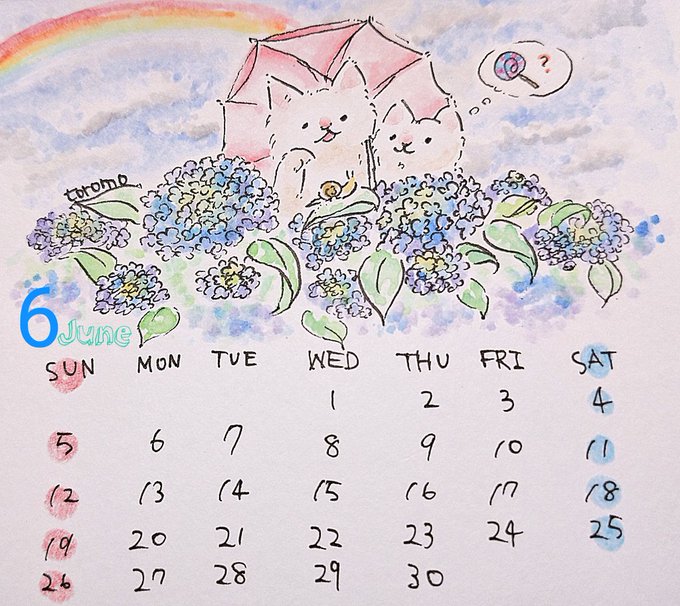 ?
toromo
6 June
SUN MON TUE WED THU FRI SAT
1 2 3 4
5 6 7 8 9 10 11
12 13 14 15 16 17 18
19 20 21 22 23 24 25
26 27 28 29 30